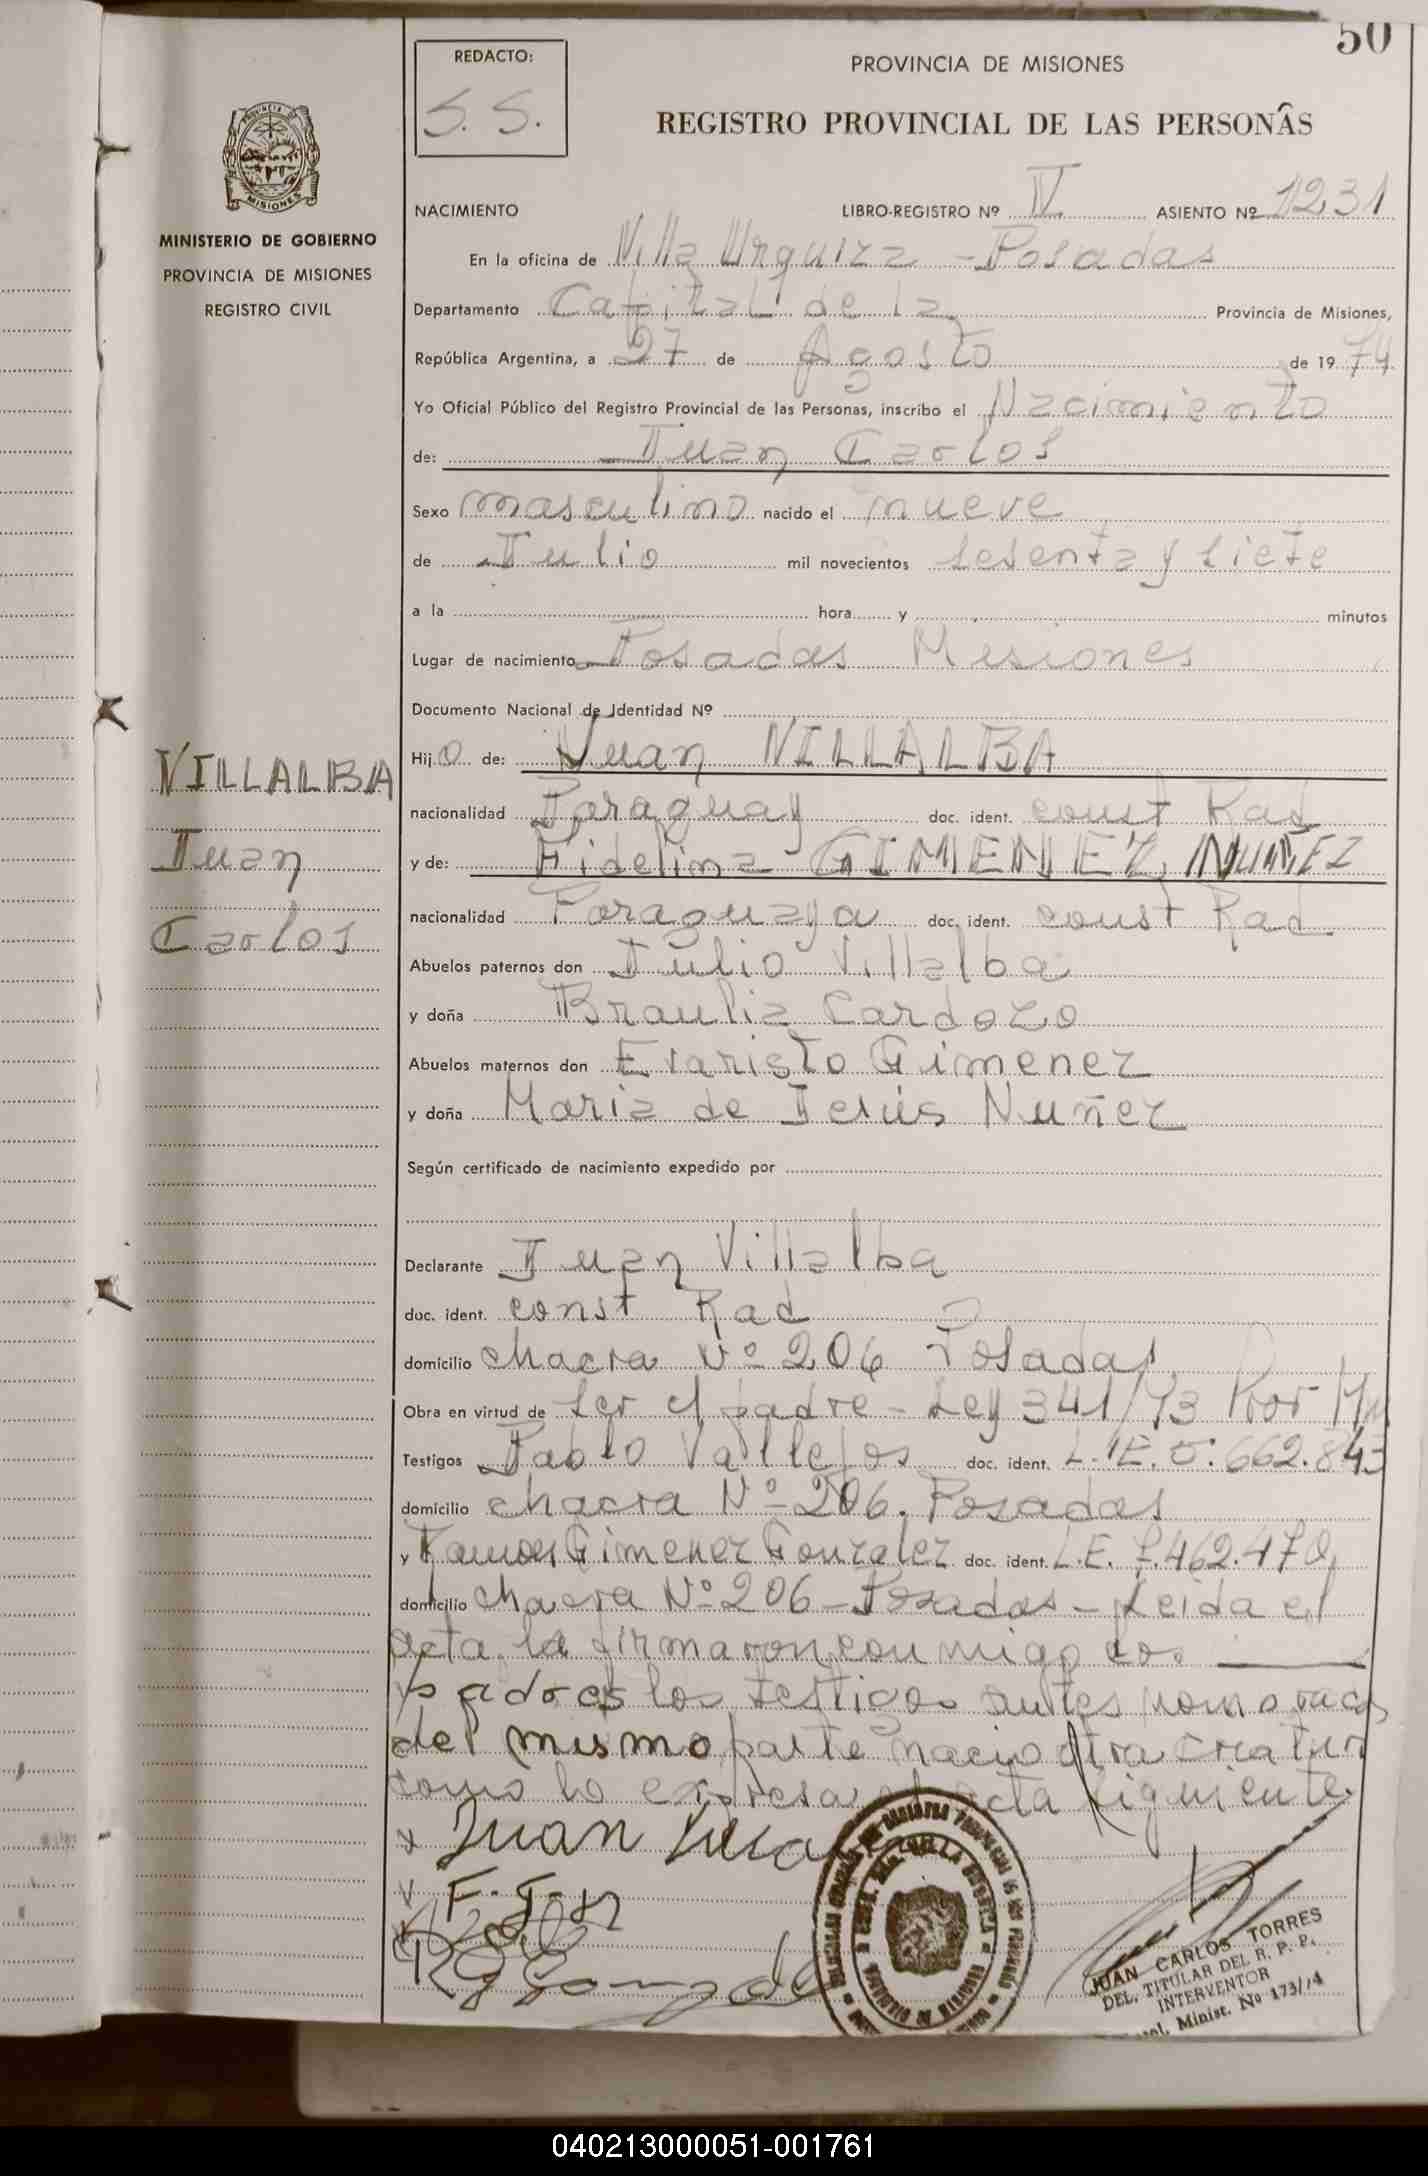 50
REDACTO:
S. S.
PROVINCIA DE MISIONES
REGISTRO PROVINCIAL DE LAS PERSONAS
MISIONES
MINISTERIO DE GOBIERNO
PROVINCIA DE MISIONES
REGISTRO CIVIL
NACIMIENTO LIBRO-REGISTRO Nº IV ASIENTO Nº 1231
En la oficina de Villa Urquiza - Posadas
Departamento Capital de la Provincia de Misiones,
República Argentina, a 27 de Agosto de 1974
Yo Oficial Público del Registro Provincial de las Personas, inscribo el Nacimiento
de: Juan Carlos
Sexo masculino nacido el nueve
de Julio mil novecientos sesenta y siete
a la hora y minutos
Lugar de nacimiento Posadas Misiones
Documento Nacional de Identidad Nº
Hijo de: Juan VILLALBA
VILLALBA
Juan
Carlos
nacionalidad Paraguay doc. ident. const Rad
y de: Fidelina GIMENEZ NUÑEZ
nacionalidad Paraguaya doc. ident. const Rad
Abuelos paternos don Julio Villalba
y doña Braulia Cardozo
Abuelos maternos don Evaristo Gimenez
y doña Maria de Jesús Nuñez
Según certificado de nacimiento expedido por
Declarante Juan Villalba
doc. ident. const Rad
domicilio chacra Nº 206 Posadas
Obra en virtud de ser el padre - Ley 341/73
Testigos Pablo Vallejos doc. ident. L.E. 5.662.843
domicilio chacra Nº 206. Posadas
y Ramon Gimenez Gonzalez doc. ident. L.E. 7.462.470
domicilio chacra Nº 206 - Posadas - Leida el
acta la firmaron conmigo los
padres los testigos antes
del mismo parte nacio otra criatura
como lo expresa el acta siguiente.
Juan
JUAN CARLOS TORRES
DEL. TITULAR DEL R. P. P.
INTERVENTOR
Minist. Nº 173/74
040213000051-001761